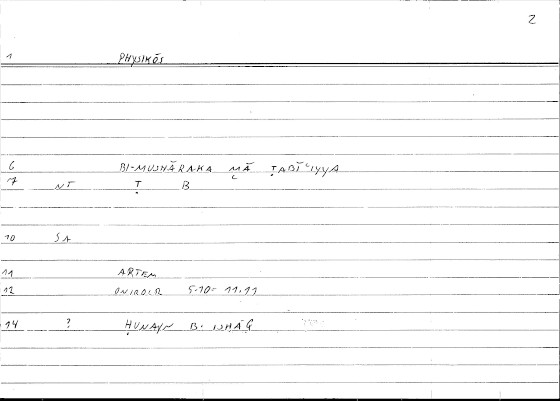 2
1 PHYSIKŌS
6 BI-MUSHĀRAKA MĀ ṬABĪʿIYYA
7 NT Ṭ B
10 SA
11 ARTEM
12 ONIROCR 5.10 = 11.11
14 ? ḤUNAYN B. ISḤĀQ